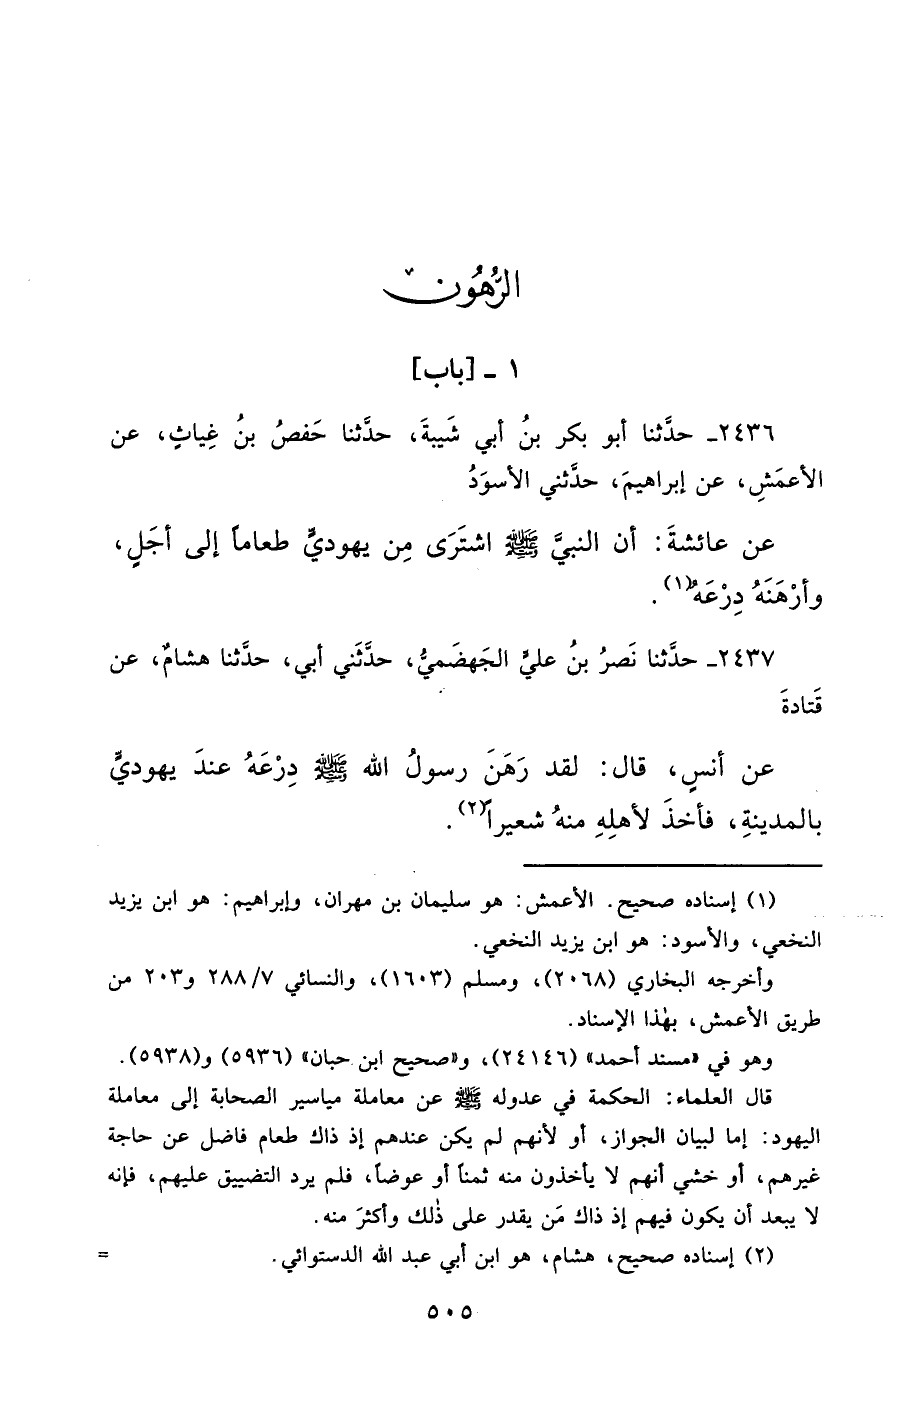 الرُّهُون
١ - [باب]
٢٤٣٦- حدَّثنا أبو بكر بنُ أبي شَيبةَ، حدَّثنا حَفصُ بنُ غِياثٍ، عن
الأعمَشِ، عن إبراهيمَ، حدَّثني الأسوَدُ
عن عائشةَ: أن النبيَّ ﷺ اشتَرَى مِن يهوديٍّ طعاماً إلى أجَلٍ،
وأرْهَنَهُ دِرْعَهُ(١).
٢٤٣٧- حدَّثنا نَصرُ بنُ عليٍّ الجَهضَميُّ، حدَّثَني أبي، حدَّثنا هشامٌ، عن
قَتادةَ
عن أنسٍ، قال: لقد رَهَنَ رسولُ الله ﷺ دِرْعَهُ عندَ يهوديٍّ
بالمدينةِ، فأخذَ لأهلِهِ منهُ شعيراً(٢).
(١) إسناده صحيح. الأعمش: هو سليمان بن مهران، وإبراهيم: هو ابن يزيد
النخعي، والأسود: هو ابن يزيد النخعي.
وأخرجه البخاري (٢٠٦٨)، ومسلم (١٦٠٣)، والنسائي ٢٨٨/٧ و٣٠٣ من
طريق الأعمش، بهٰذا الإسناد.
وهو في «مسند أحمد» (٢٤١٤٦)، و«صحيح ابن حبان» (٥٩٣٦) و(٥٩٣٨).
قال العلماء: الحكمة في عدوله ﷺ عن معاملة مياسير الصحابة إلى معاملة
اليهود: إما لبيان الجواز، أو لأنهم لم يكن عندهم إذ ذاك طعام فاضل عن حاجة
غيرهم، أو خشي أنهم لا يأخذون منه ثمناً أو عوضاً، فلم يرد التضييق عليهم، فإنه
لا يبعد أن يكون فيهم إذ ذاك مَن يقدر على ذٰلك وأكثرَ منه.
(٢) إسناده صحيح، هشام، هو ابن أبي عبد الله الدستوائي. =
٥٠٥